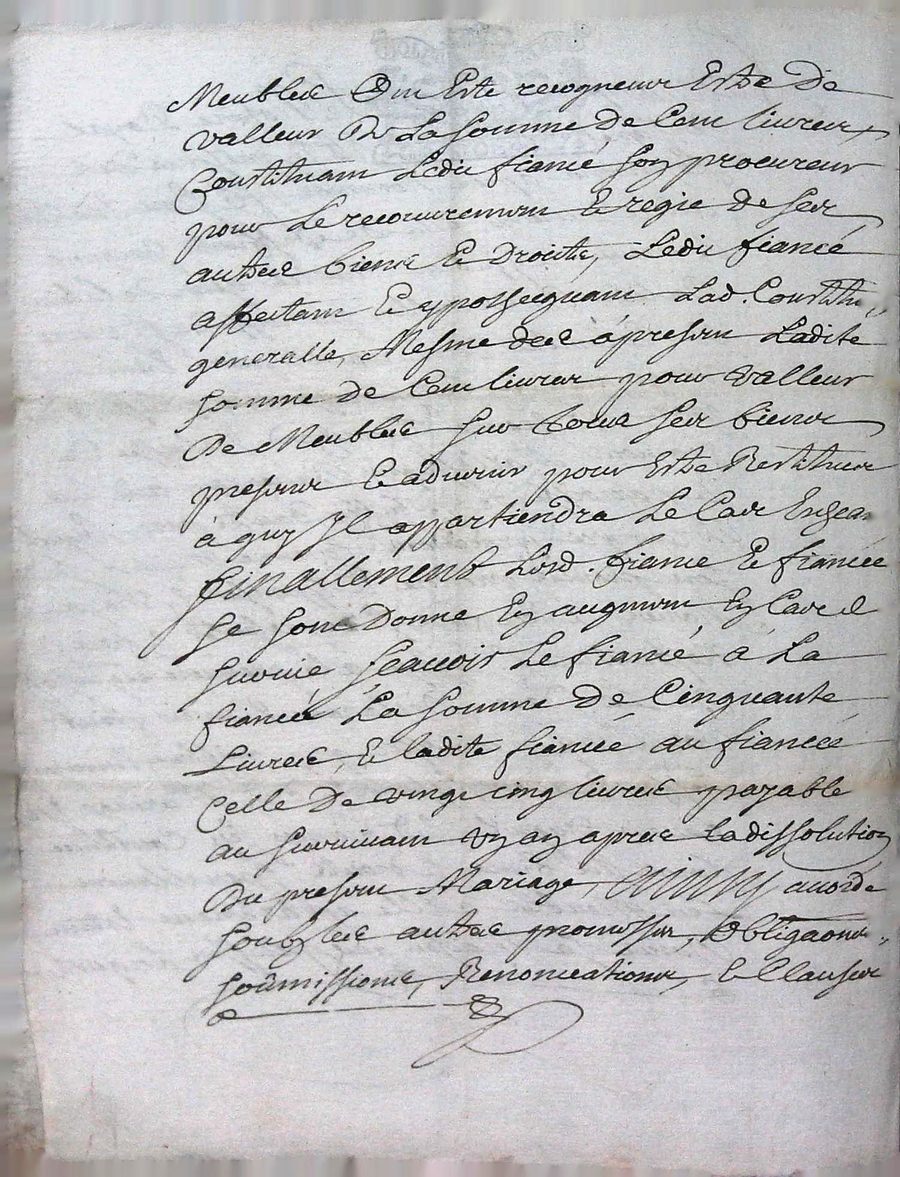 Meubles Qui Este recogneus Estre De
valleur De La Somme de Cent livres
Constituant Ledit fiancé Son procureur
pour Le recouvrement Et regie de Ses
autres biens Et Droits, Ledit fiancé
affectant Et ypothecquant Lad. Constitu
generalle, Mesme des à present Ladite
Somme de Cent livres pour valleur
De Meubles Sur tous Ses biens
presents Et advenir pour Estre Restitues
à quy Il appartiendra Le Cas Escean
finallement Lesd. fiancé Et fiancée
Se Sont Donne En augment En Cas de
Survie Scavoir Le fiancé à La
fiancée La Somme De Cinquante
Livres, Et ladite fiancée au fiancée
Celle De vingt cinq livres payable
au Survivant un an apres La dissolution
Du present Mariage, ainsy accordé
Soubz les autres promesses, Obligaons
Soûmissions, Renonciations, Et Clauses